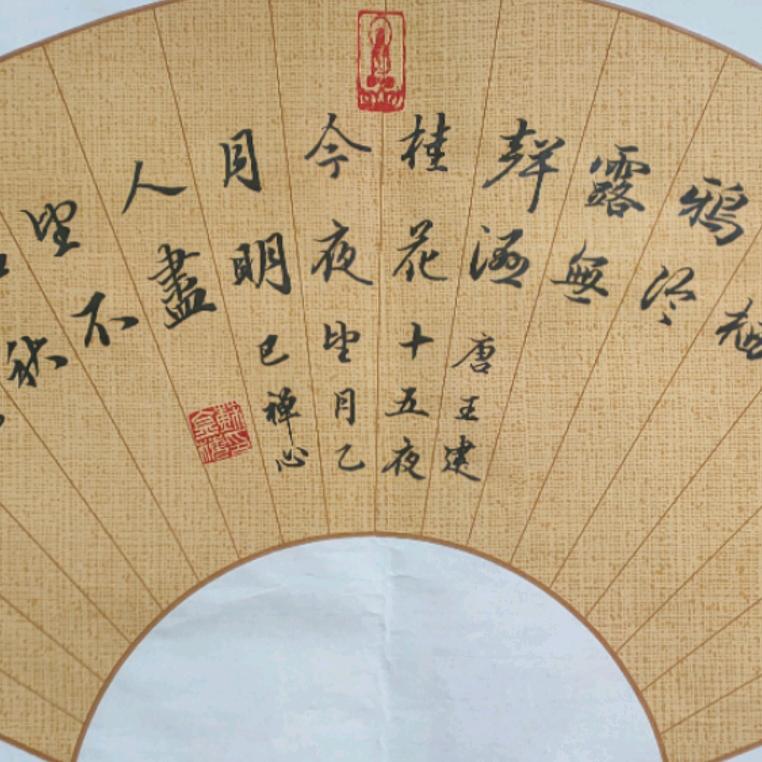 栖
鴉冷
露無
聲濕
桂花
今夜
月明
人盡
望不
秋
唐王建
十五夜
望月乙
巳禅心